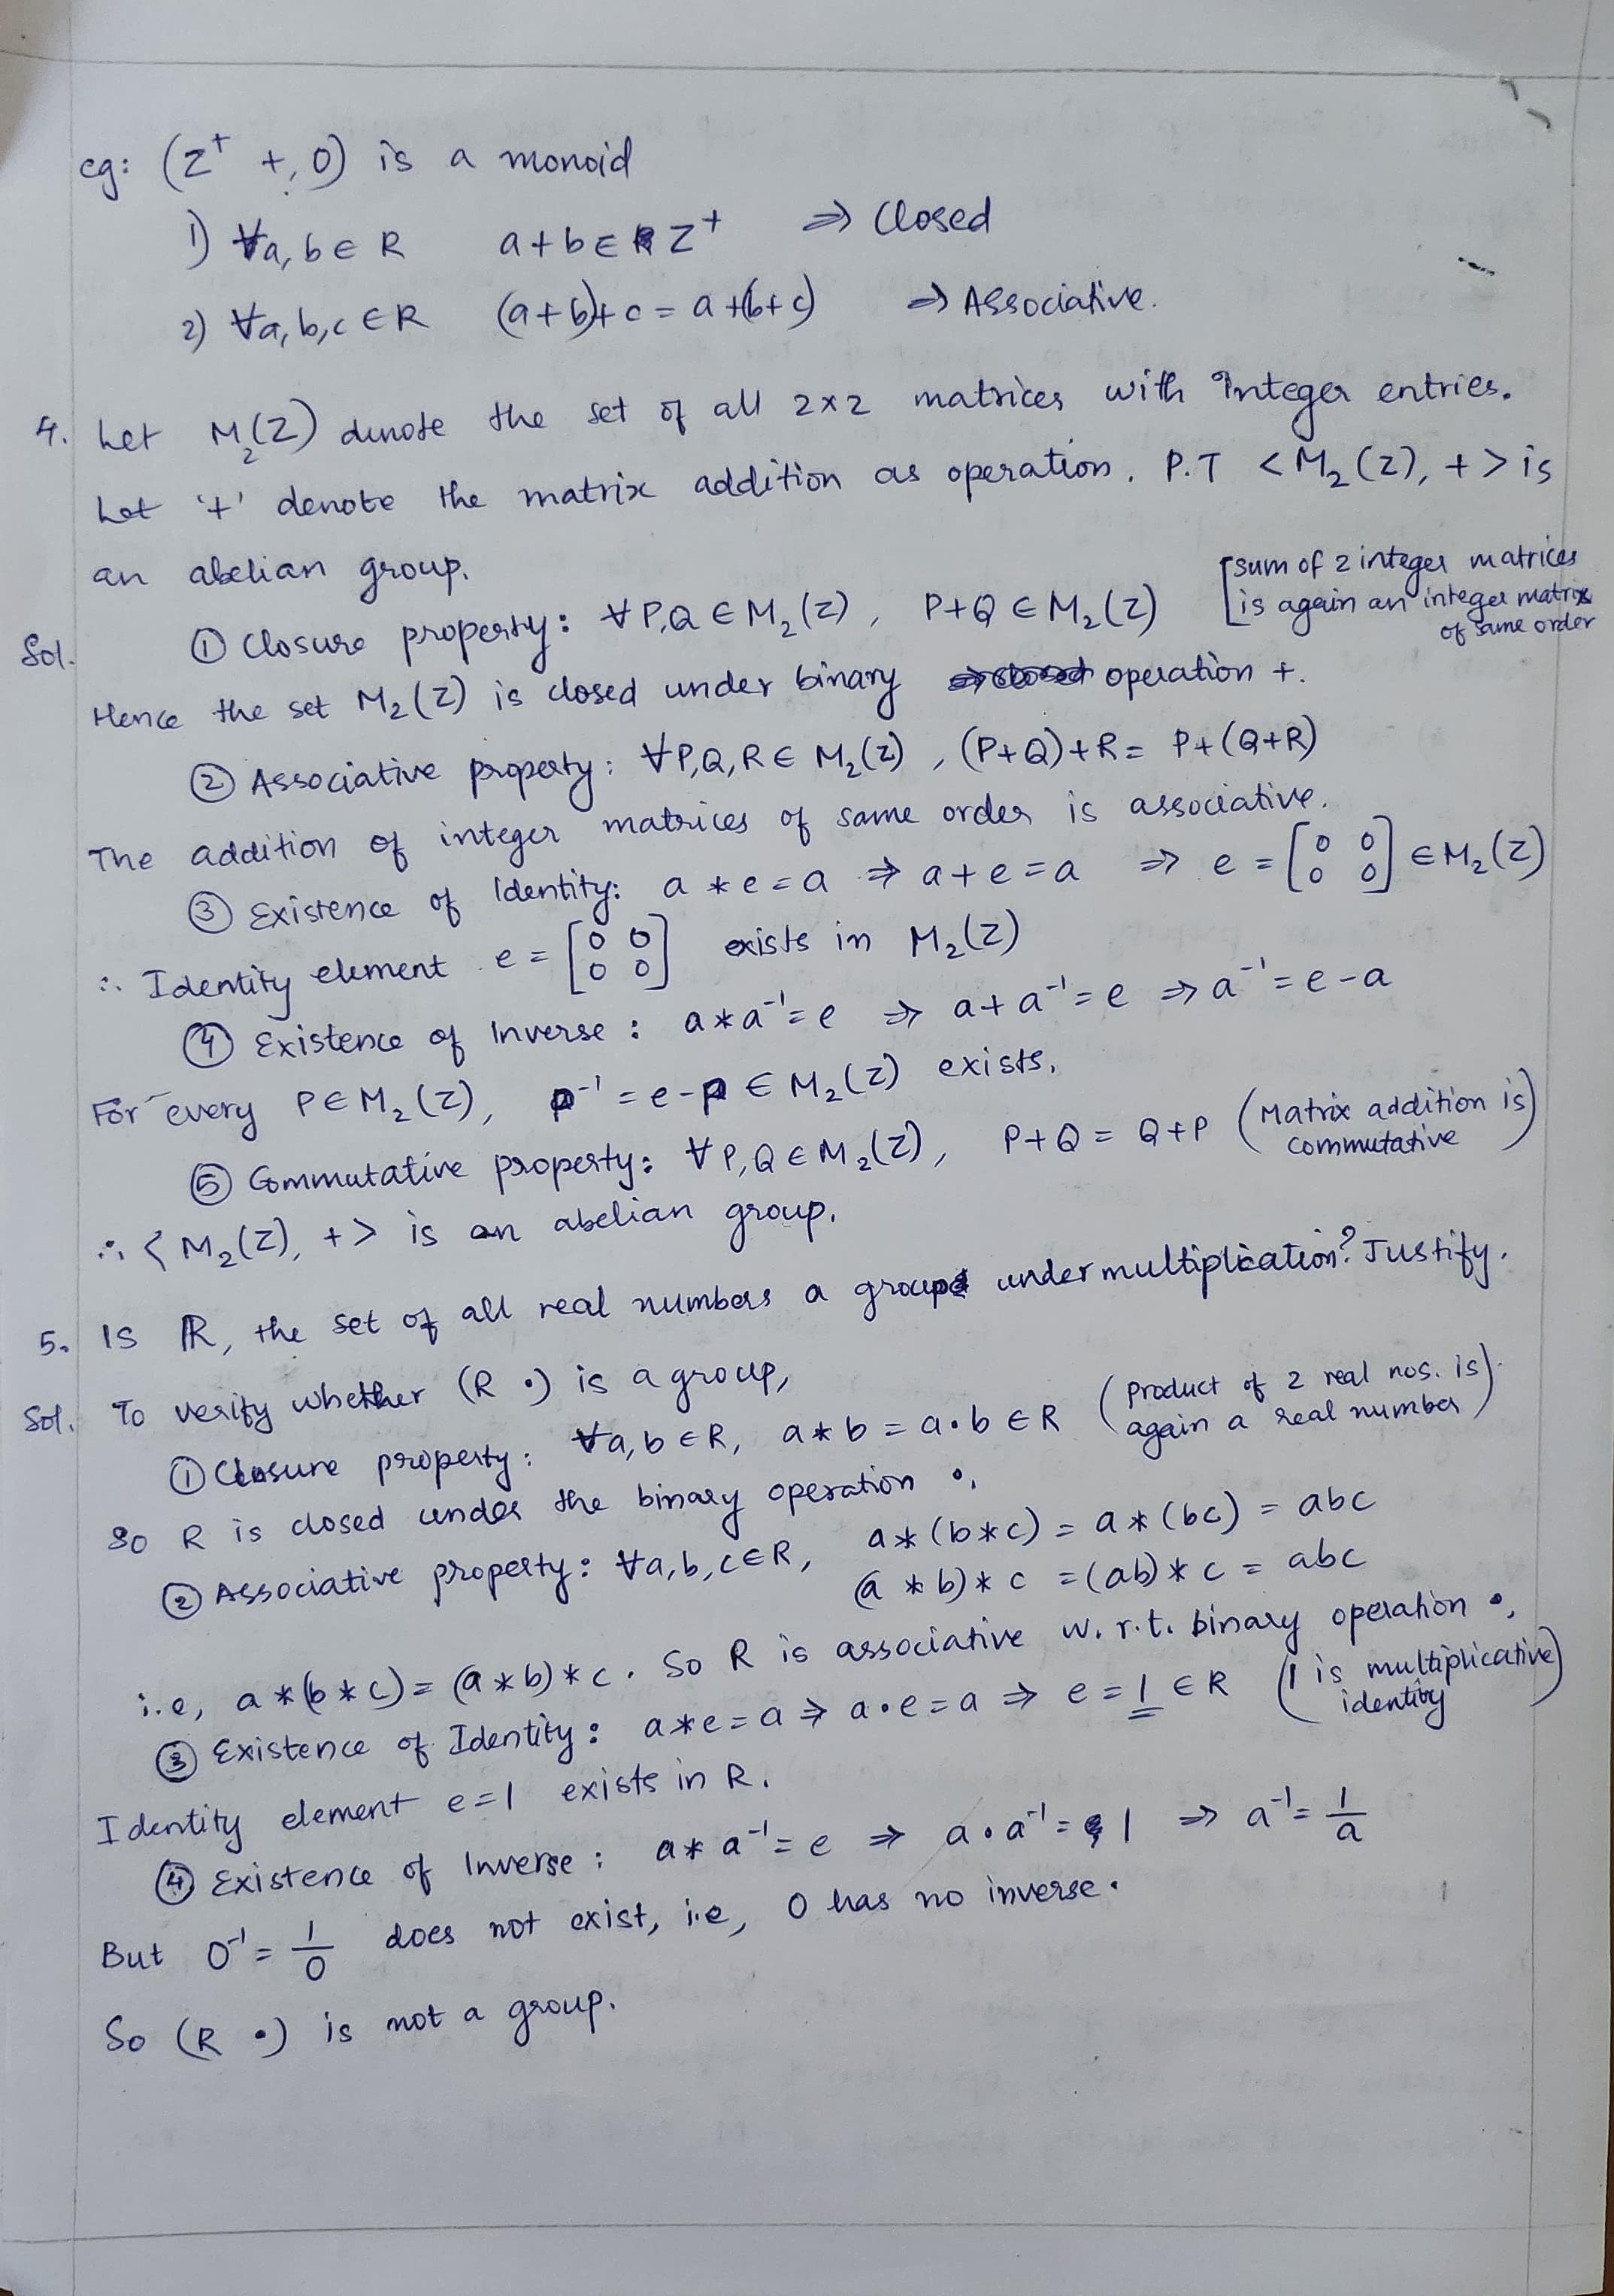 eg: (Z⁺ +, 0) is a monoid
1) ∀a, b ∈ R a+b ∈ Z⁺ ⇒ Closed
2) ∀a, b, c ∈ R (a+b)+c = a+(b+c) ⇒ Associative.
4. Let M₂(Z) denote the set of all 2×2 matrices with Integer entries.
Let '+' denote the matrix addition as operation. P.T <M₂(Z), +> is
an abelian group.
Sol. ① Closure property: ∀ P,Q ∈ M₂(Z), P+Q ∈ M₂(Z) [sum of 2 integer matrices
is again an integer matrix
of same order
Hence the set M₂(Z) is closed under binary operation +.
② Associative property: ∀ P,Q,R ∈ M₂(Z), (P+Q)+R = P+(Q+R)
The addition of integer matrices of same order is associative.
③ Existence of Identity: a * e = a ⇒ a+e = a ⇒ e = [0 0 0 0] ∈ M₂(Z)
∴ Identity element e = [0 0 0 0] exists in M₂(Z)
④ Existence of Inverse : a * a⁻¹ = e ⇒ a + a⁻¹ = e ⇒ a⁻¹ = e-a
For every P ∈ M₂(Z), p⁻¹ = e-p ∈ M₂(Z) exists.
⑤ Commutative property: ∀ P,Q ∈ M₂(Z), P+Q = Q+P (Matrix addition is
commutative)
∴ <M₂(Z), +> is an abelian group.
5. Is ℝ, the set of all real numbers a group under multiplication? Justify.
Sol. To verify whether (R •) is a group,
① Closure property: ∀a, b ∈ R, a * b = a•b ∈ R (product of 2 real nos. is
again a real number)
So R is closed under the binary operation •.
② Associative property: ∀a, b, c ∈ R, a * (b * c) = a * (bc) = abc
(a * b) * c = (ab) * c = abc
i.e, a * (b * c) = (a * b) * c. So R is associative w.r.t. binary operation •,
③ Existence of Identity: a * e = a ⇒ a•e = a ⇒ e = 1 ∈ R (1 is multiplicative
identity)
Identity element e = 1 exists in R.
④ Existence of Inverse: a * a⁻¹ = e ⇒ a • a⁻¹ = 1 ⇒ a⁻¹ = 1/a
But 0⁻¹ = 1/0 does not exist, i.e, 0 has no inverse.
So (R •) is not a group.